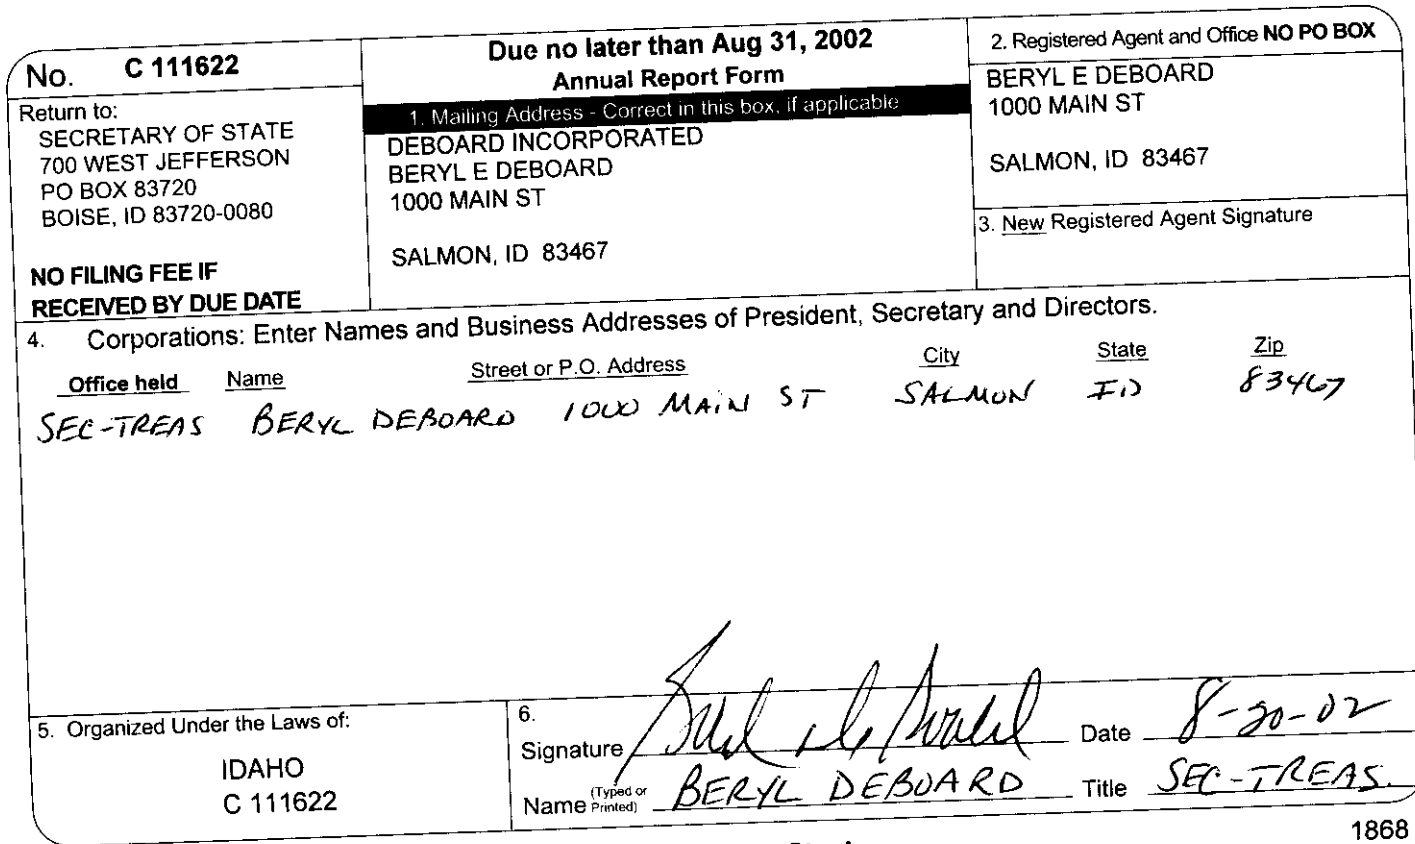 No. C 111622
Return to:
SECRETARY OF STATE
700 WEST JEFFERSON
PO BOX 83720
BOISE, ID 83720-0080
NO FILING FEE IF
RECEIVED BY DUE DATE
Due no later than Aug 31, 2002
Annual Report Form
1. Mailing Address - Correct in this box, if applicable
DEBOARD INCORPORATED
BERYL E DEBOARD
1000 MAIN ST
SALMON, ID 83467
2. Registered Agent and Office NO PO BOX
BERYL E DEBOARD
1000 MAIN ST
SALMON, ID 83467
3. New Registered Agent Signature
4. Corporations: Enter Names and Business Addresses of President, Secretary and Directors.
Office held Name Street or P.O. Address City State Zip
SEC-TREAS BERYL DEBOARD 1000 MAIN ST SALMON ID 83467
5. Organized Under the Laws of:
IDAHO
C 111622
6.
Signature Date 8-20-02
Name (Typed or Printed) BERYL DEBOARD Title SEC-TREAS.
1868